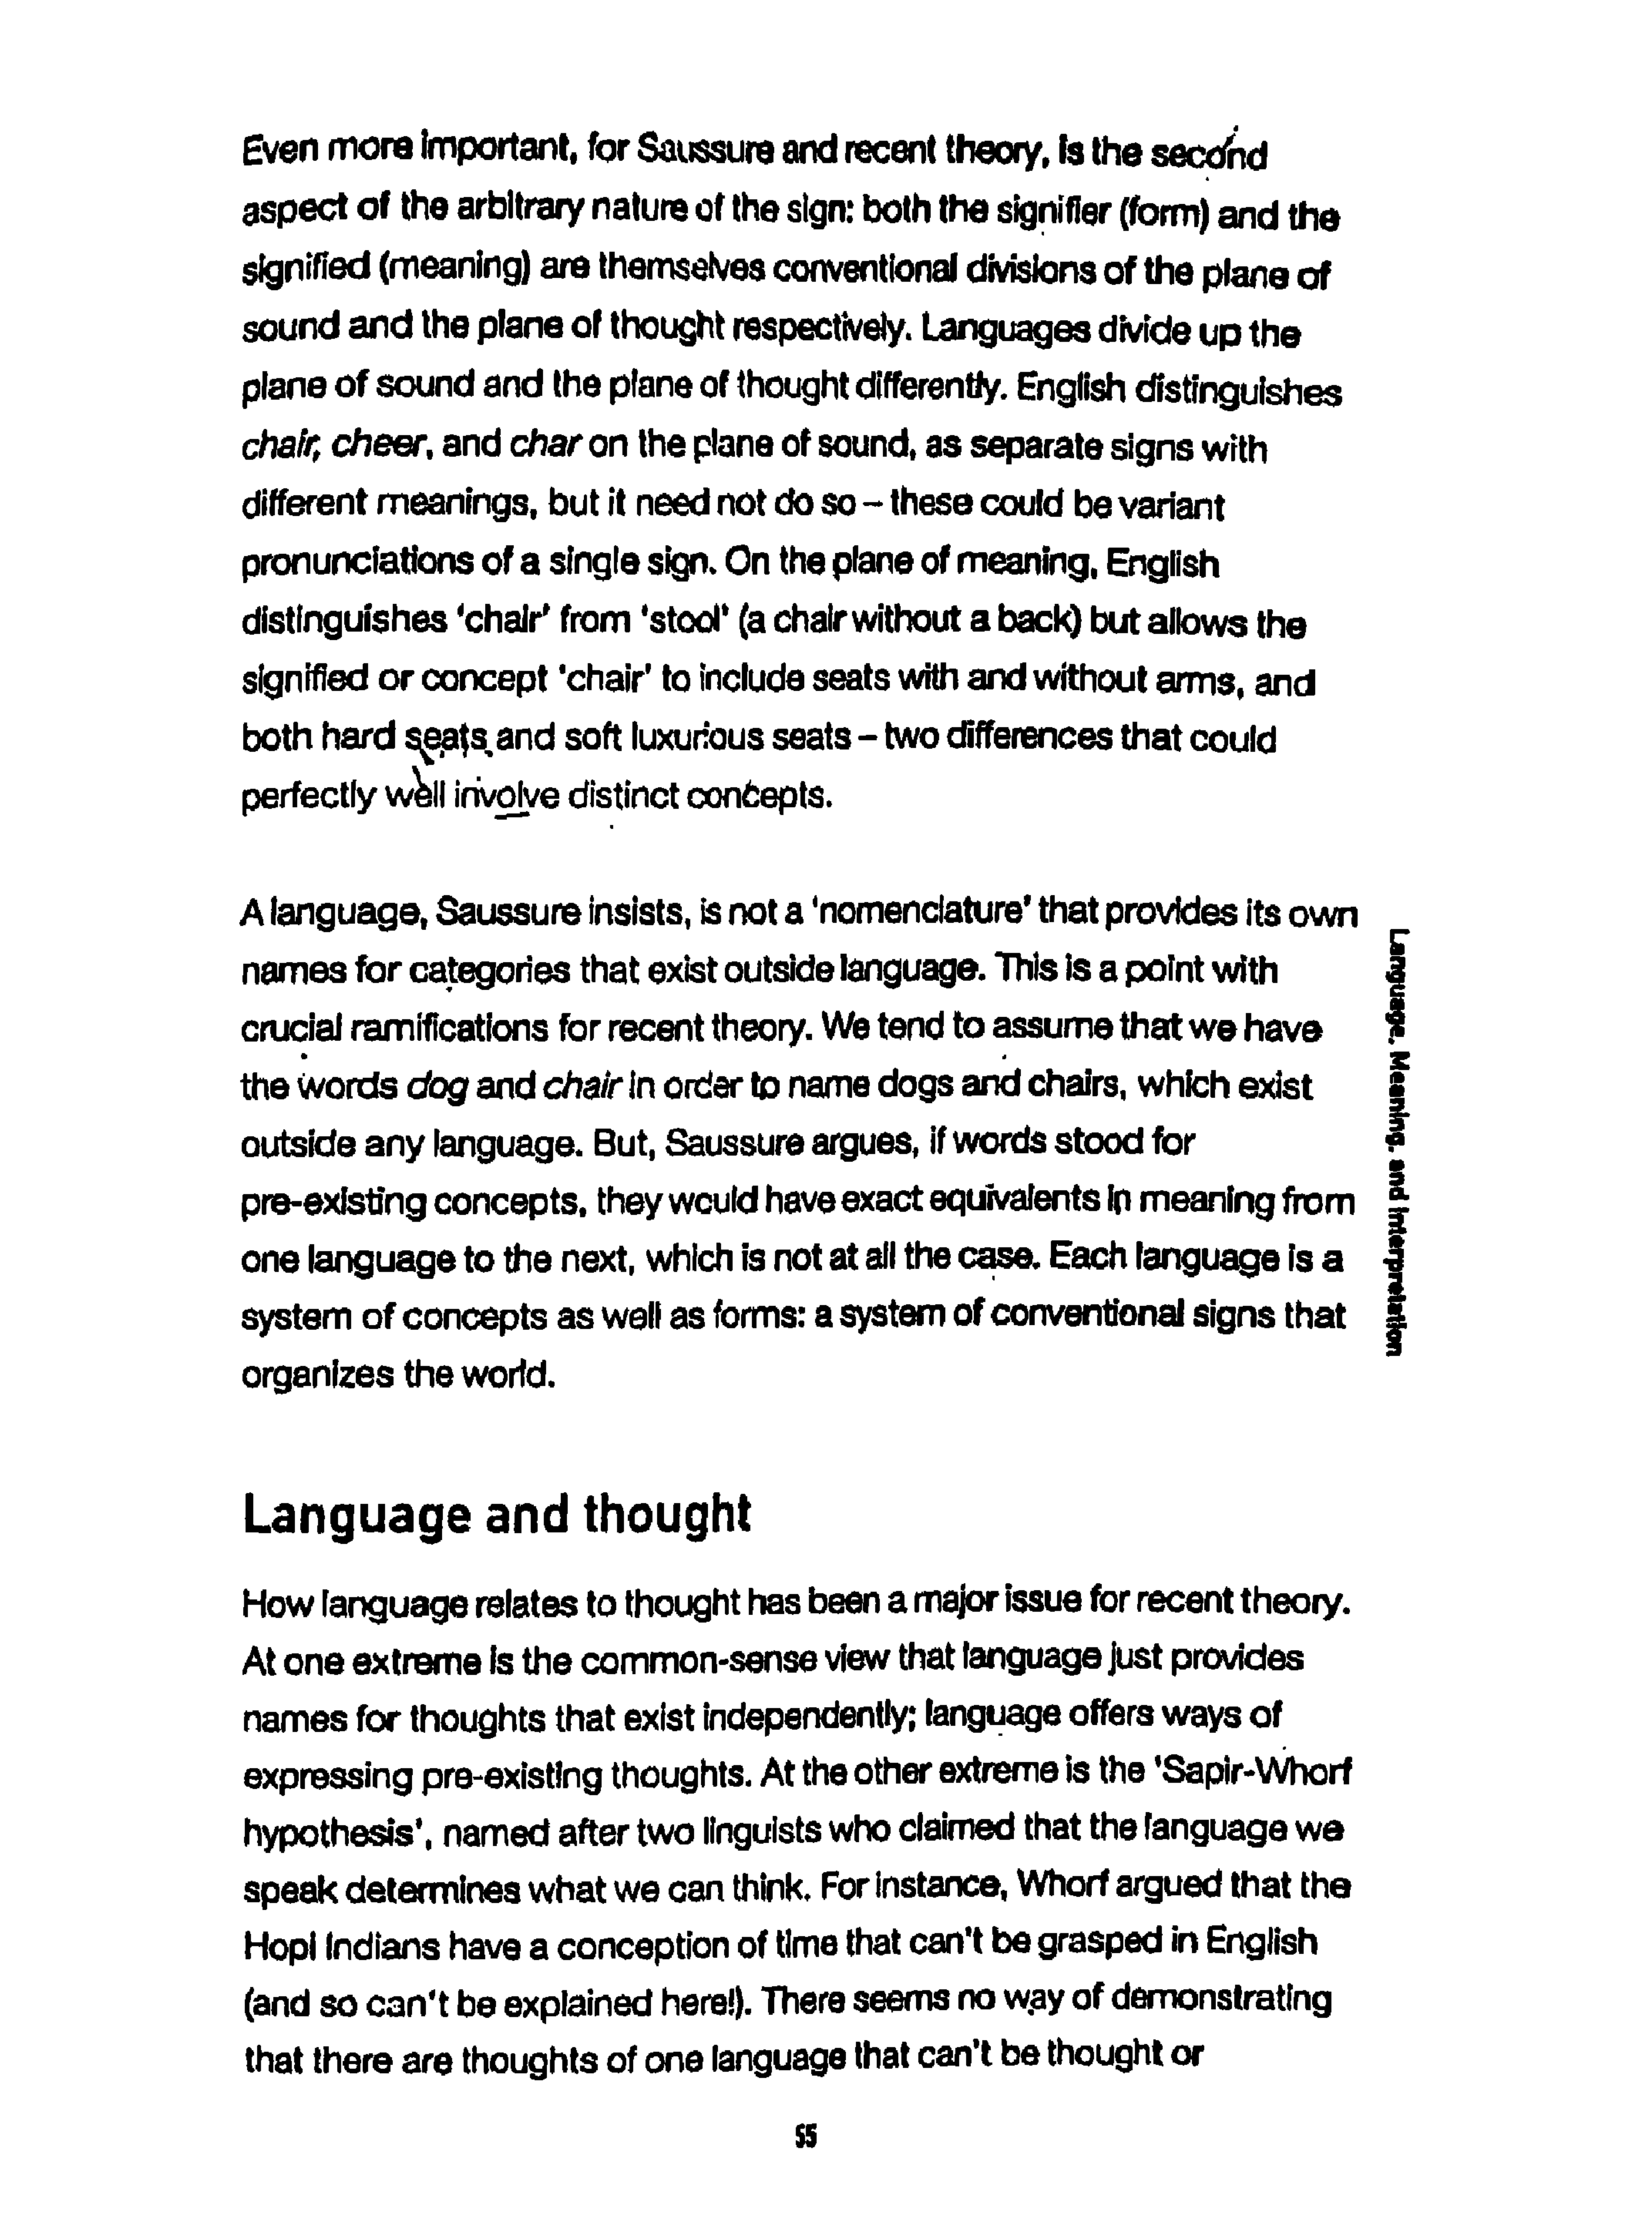 Even more important, for Saussure and recent theory, is the second
aspect of the arbitrary nature of the sign: both the signifier (form) and the
signified (meaning) are themselves conventional divisions of the plane of
sound and the plane of thought respectively. Languages divide up the
plane of sound and the plane of thought differently. English distinguishes
chair, cheer, and char on the plane of sound, as separate signs with
different meanings, but it need not do so – these could be variant
pronunciations of a single sign. On the plane of meaning, English
distinguishes 'chair' from 'stool' (a chair without a back) but allows the
signified or concept 'chair' to include seats with and without arms, and
both hard seats and soft luxurious seats – two differences that could
perfectly well involve distinct concepts.
A language, Saussure insists, is not a 'nomenclature' that provides its own
names for categories that exist outside language. This is a point with
crucial ramifications for recent theory. We tend to assume that we have
the words dog and chair in order to name dogs and chairs, which exist
outside any language. But, Saussure argues, if words stood for
pre-existing concepts, they would have exact equivalents in meaning from
one language to the next, which is not at all the case. Each language is a
system of concepts as well as forms: a system of conventional signs that
organizes the world.
Language, Meaning, and Interpretation
Language and thought
How language relates to thought has been a major issue for recent theory.
At one extreme is the common-sense view that language just provides
names for thoughts that exist independently; language offers ways of
expressing pre-existing thoughts. At the other extreme is the 'Sapir-Whorf
hypothesis', named after two linguists who claimed that the language we
speak determines what we can think. For instance, Whorf argued that the
Hopi Indians have a conception of time that can't be grasped in English
(and so can't be explained here!). There seems no way of demonstrating
that there are thoughts of one language that can't be thought or
55